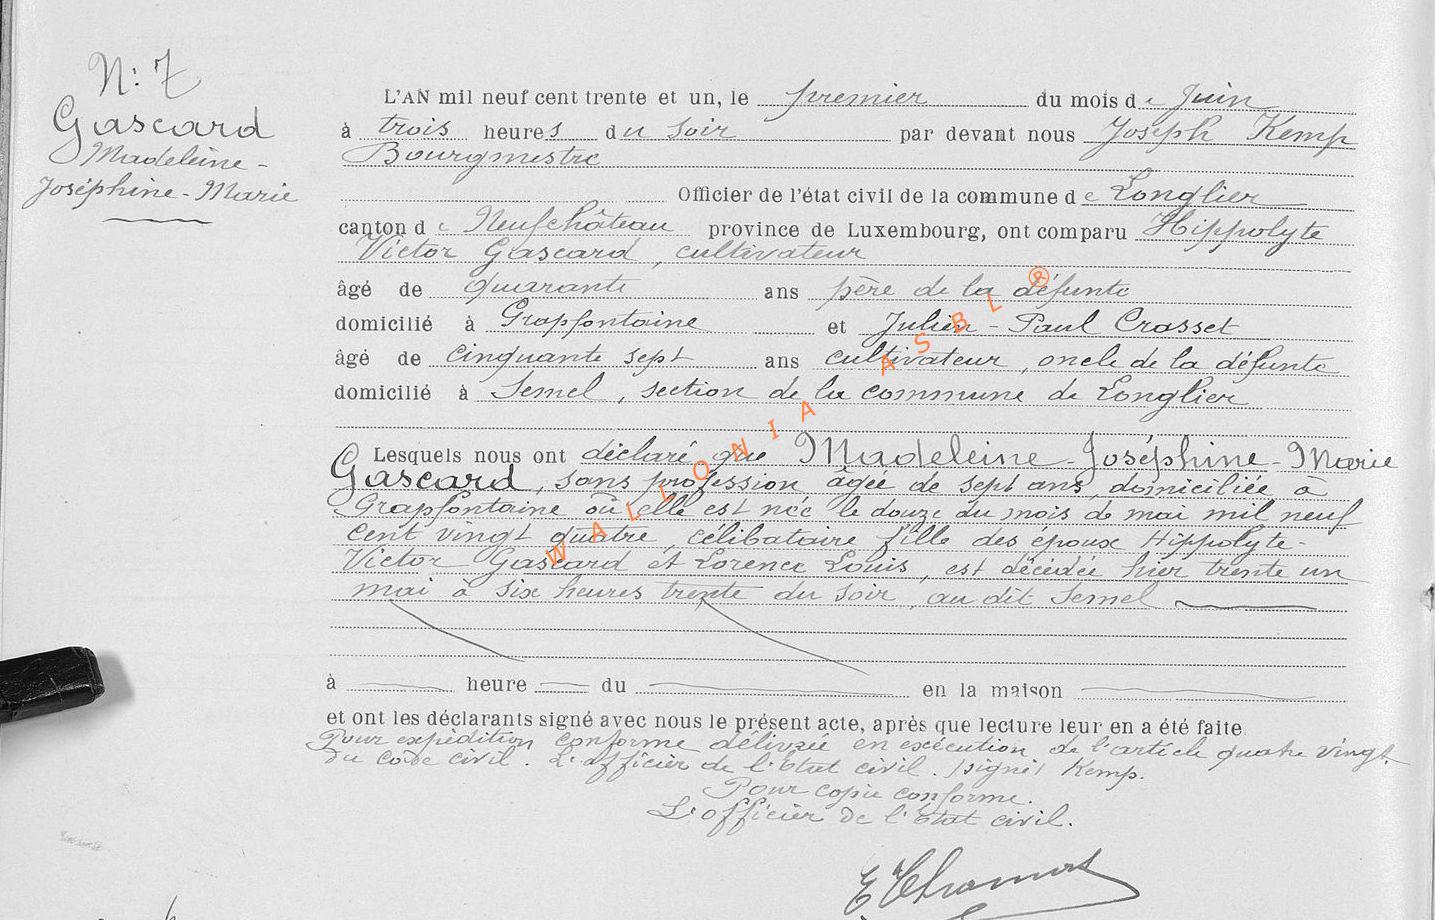 N: 7
Gascard
Madeleine-
Joséphine-Marie
L'AN mil neuf cent trente et un, le premier du mois de Juin
à trois heures du soir par devant nous Joseph Kemp
Bourgmestre
Officier de l'état civil de la commune de Longlier
canton de Neufchâteau province de Luxembourg, ont comparu Hippolyte
Victor Gascard, cultivateur
âgé de quarante ans père de la défunte
domicilié à Grapfontaine et Julien-Paul Crasset
âgé de cinquante sept ans cultivateur, oncle de la défunte
domicilié à Semel, section de la commune de Longlier
Lesquels nous ont déclaré que Madeleine-Joséphine-Marie
Gascard, sans profession âgée de sept ans, domiciliée à
Grapfontaine où elle est née le douze du mois de mai mil neuf
cent vingt quatre, célibataire fille des époux Hippolyte-
Victor Gascard et Lorence Louis, est décédée hier trente un
mai à six heures trente du soir, au dit Semel
à heure du en la maison
et ont les déclarants signé avec nous le présent acte, après que lecture leur en a été faite
Pour expédition conforme délivrée en exécution de l'article quatre vingt
du code civil. L'officier de l'Etat civil. (signé) Kemp.
Pour copie conforme.
L'officier de l'Etat civil.
WALLONIA ASBL ®